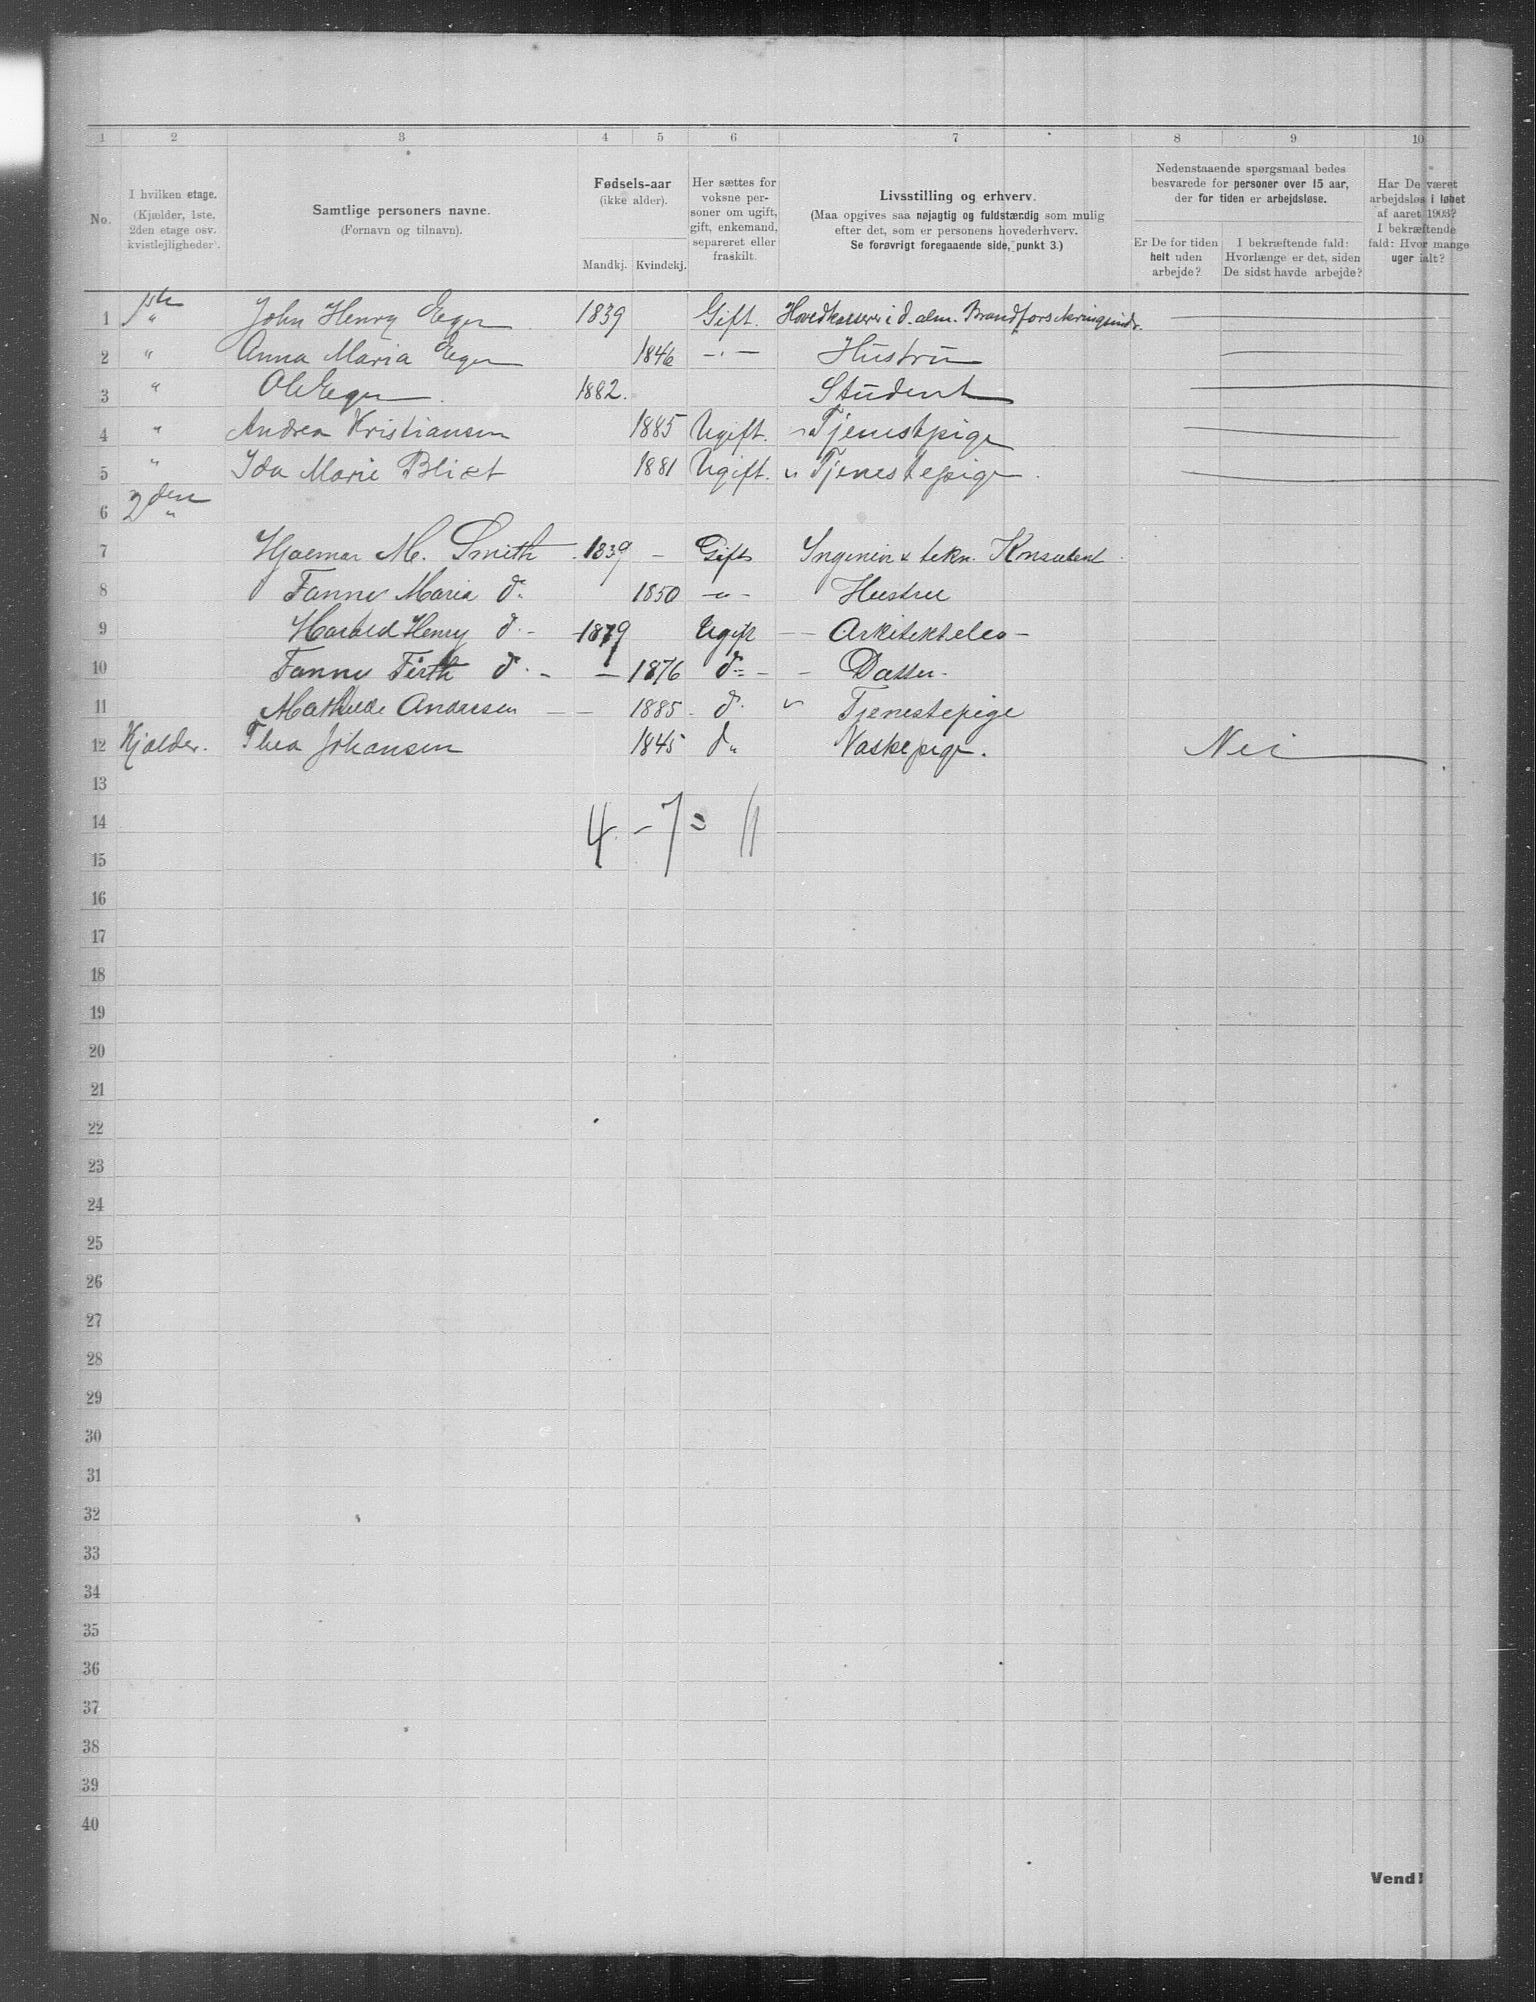 1 2 3 4 5 6 7 8 9 10
No.
I hvilken etage.
(Kjælder, 1ste, 2den etage osv. kvistlejligheder).
Samtlige personers navne.
(Fornavn og tilnavn).
Fødsels-aar
(ikke alder).
Mandkj. Kvindekj.
Her sættes for voksne personer om ugift, gift, enkemand, separeret eller fraskilt.
Livsstilling og erhverv.
(Maa opgives saa nøjagtig og fuldstændig som mulig efter det, som er personens hovederhverv.
Se forøvrigt foregaaende side, punkt 3.)
Nedenstaaende spørgsmaal bedes besvarede for personer over 15 aar, der for tiden er arbejdsløse.
Er De for tiden helt uden arbejde?
I bekræftende fald: Hvorlænge er det, siden De sidst havde arbejde?
Har De været arbejdsløs i løbet af aaret 1903? I bekræftende fald: Hvor mange uger ialt?
1 1ste John Henry Eger 1839 Gift. Hovedkasserer i d. alm. Brandforsikringsindr.
2 " Anna Maria Eger 1846 -"- Hustru
3 " Ole Eger 1882. Student
4 " Andrea Kristiansen 1885 Ugift. Tjenestpige
5 " Ida Marie Blixt 1881 Ugift. Tjenestepige
6 2den "
7 Hjalmar M. Smith 1839 - Gift Ingeniør & tekn. Konsulent
8 Fanny Maria d. 1850 -"- Hustru
9 Harald Henry d. - 1879 Ugift - Arkitektelev -
10 Fanny Firth d. - - 1876 d. - - Datter.
11 Mathilde Andresen - - 1885. d. " Tjenestepige
12 Kjælder. Thea Johansen 1845 d. Vaskepige. Nei
13
14 4 - 7 = 11
15
16
17
18
19
20
21
22
23
24
25
26
27
28
29
30
31
32
33
34
35
36
37
38
39
40
Vend!